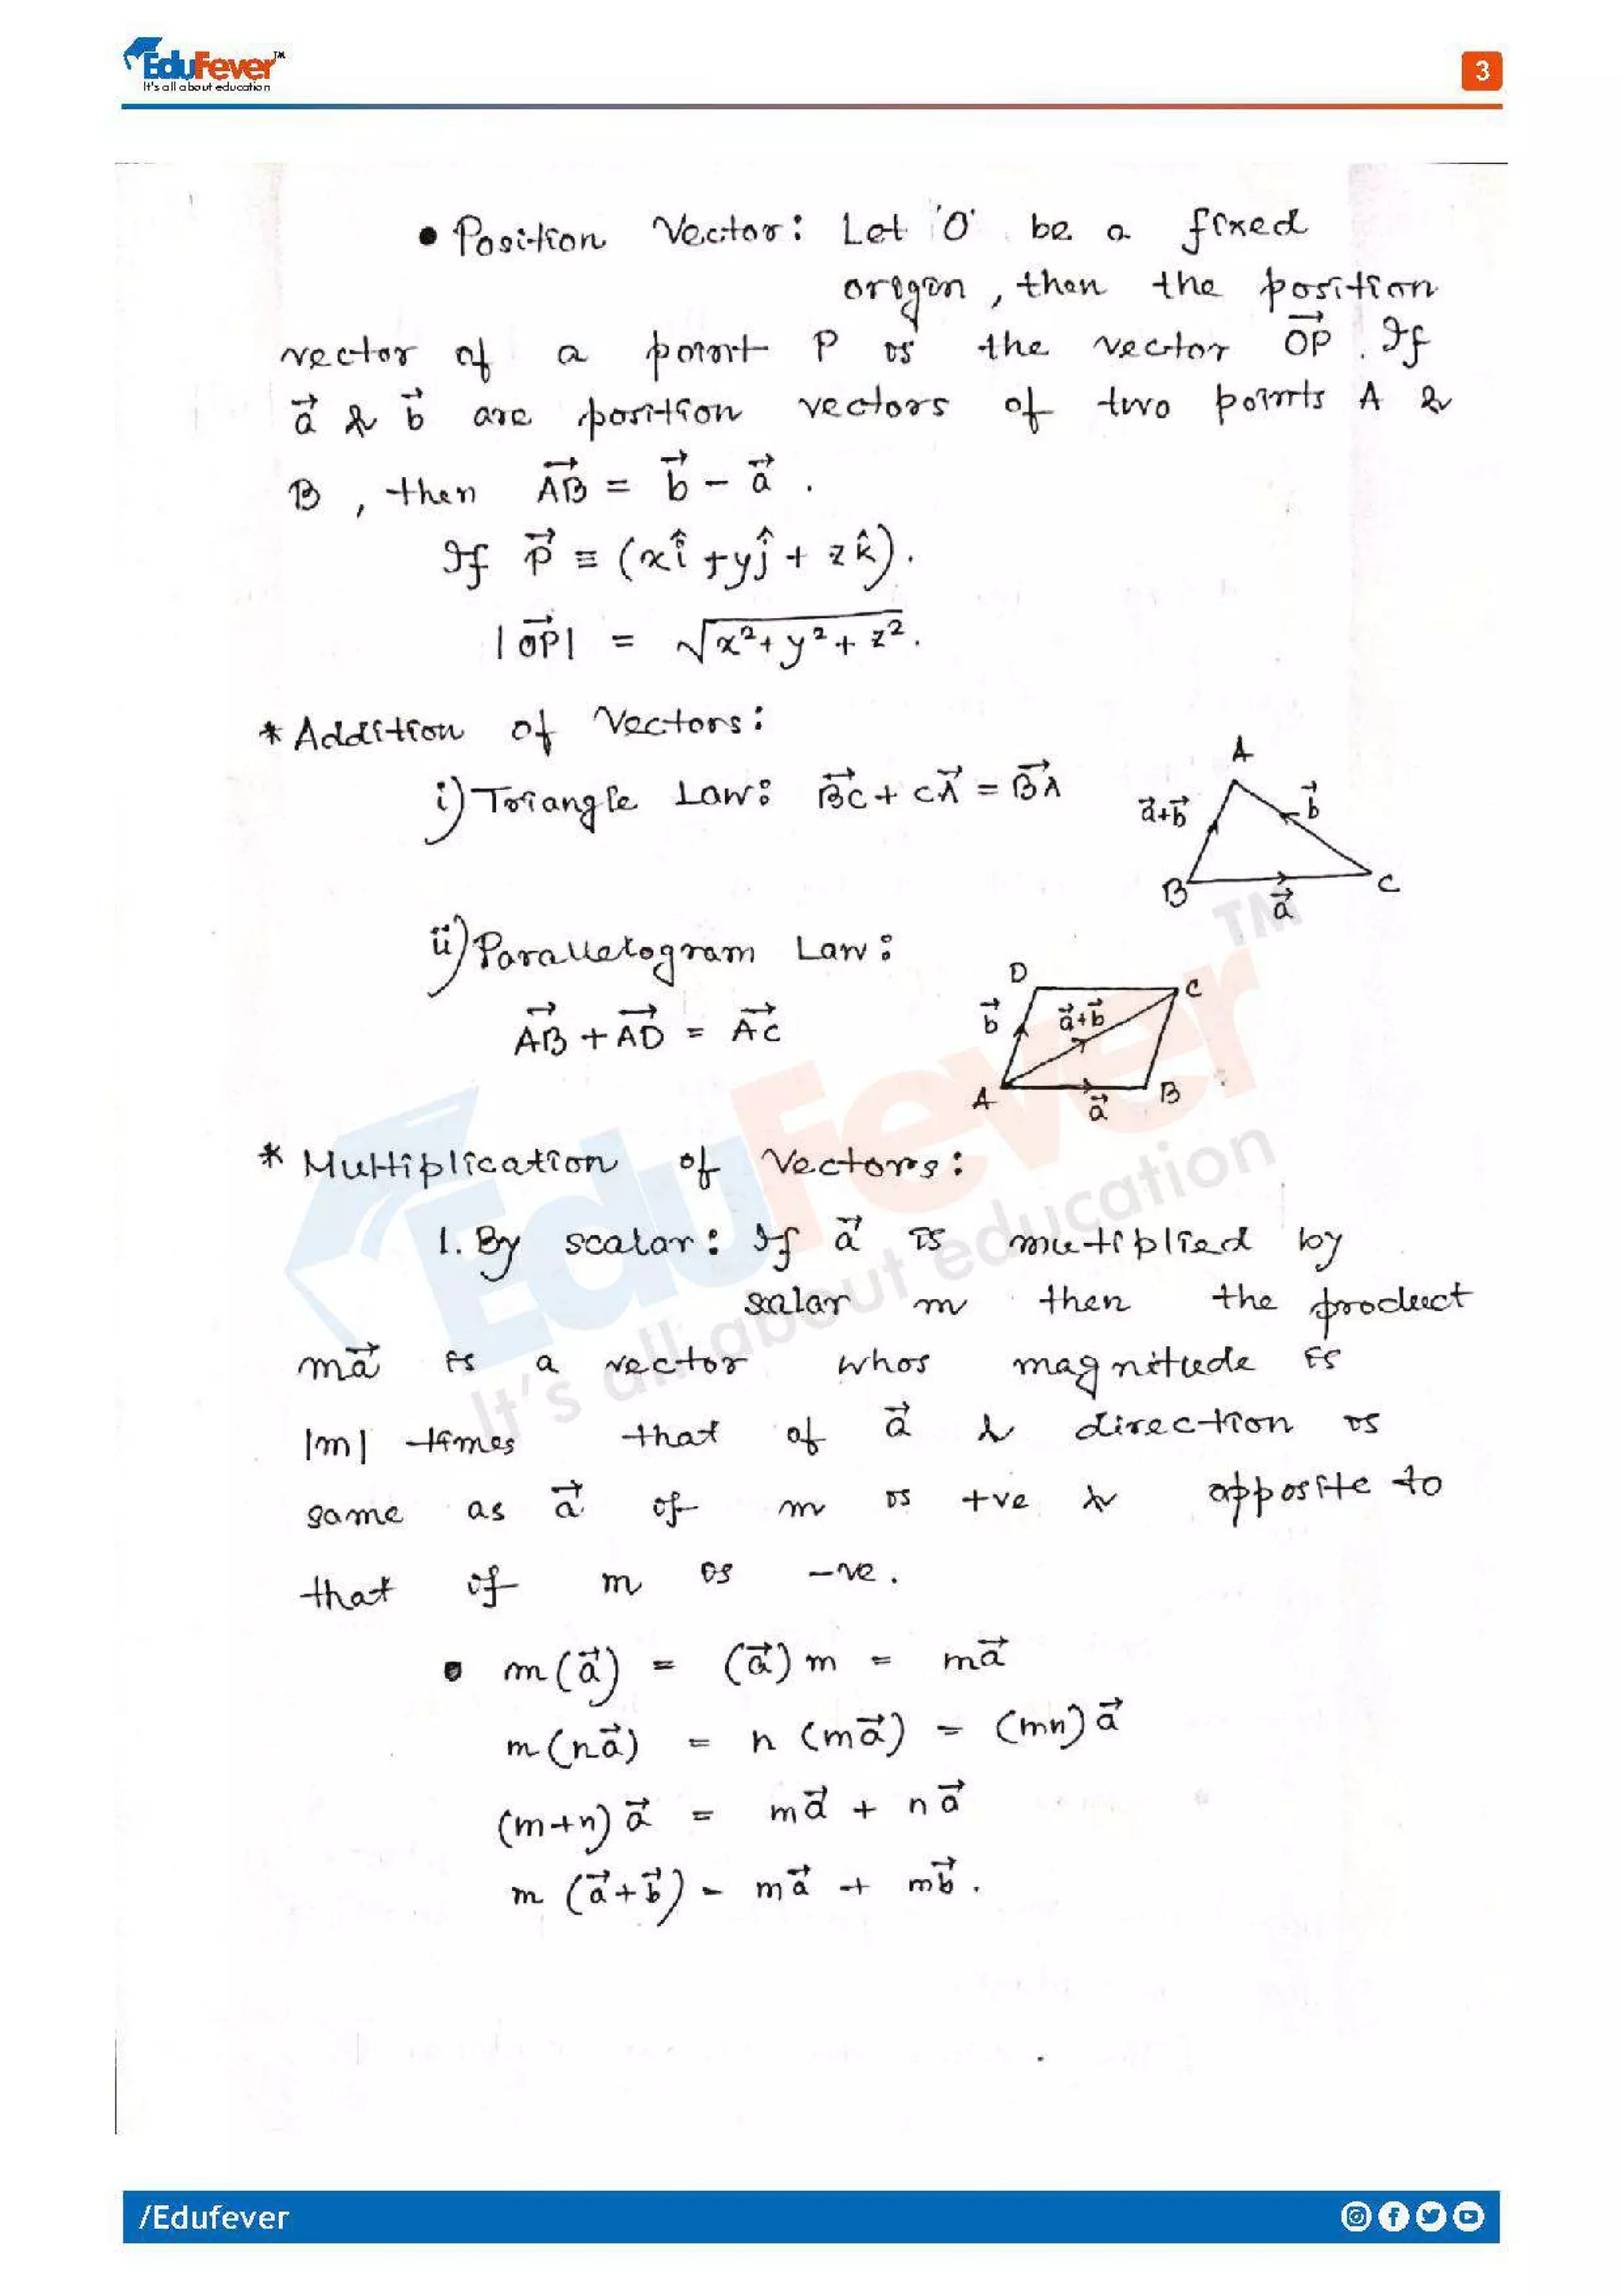 EduFever™
It's all about education
3
• Position Vector: Let 'O' be a fixed
origin, then the position
vector of a point P is the vector \overrightarrow{OP}. If
\vec{a} & \vec{b} are position vectors of two points A &
B, then \overrightarrow{AB} = \vec{b} - \vec{a}.
If \vec{P} ≡ (x\hat{i} + y\hat{j} + z\hat{k}).
|\overrightarrow{OP}| = √x²+y²+z².
* Addition of Vectors:
i) Triangle Law: \overrightarrow{BC} + \overrightarrow{CA} = \overrightarrow{BA}
A
\vec{a}+\vec{b} \vec{b}
B \vec{a} C
ii) Parallelogram Law:
\overrightarrow{AB} + \overrightarrow{AD} = \overrightarrow{AC}
D C
\vec{b} \vec{a}+\vec{b}
A \vec{a} B
* Multiplication of Vectors:
1. By scalar: If \vec{a} is multiplied by
scalar m then the product
m\vec{a} is a vector whos magnitude is
|m| times that of \vec{a} & direction is
same as \vec{a} if m is +ve & opposite to
that if m is -ve.
• m(\vec{a}) = (\vec{a})m = m\vec{a}
m(n\vec{a}) = n(m\vec{a}) = (mn)\vec{a}
(m+n)\vec{a} = m\vec{a} + n\vec{a}
m(\vec{a}+\vec{b}) = m\vec{a} + m\vec{b}.
EduFever™
It's all about education
/Edufever